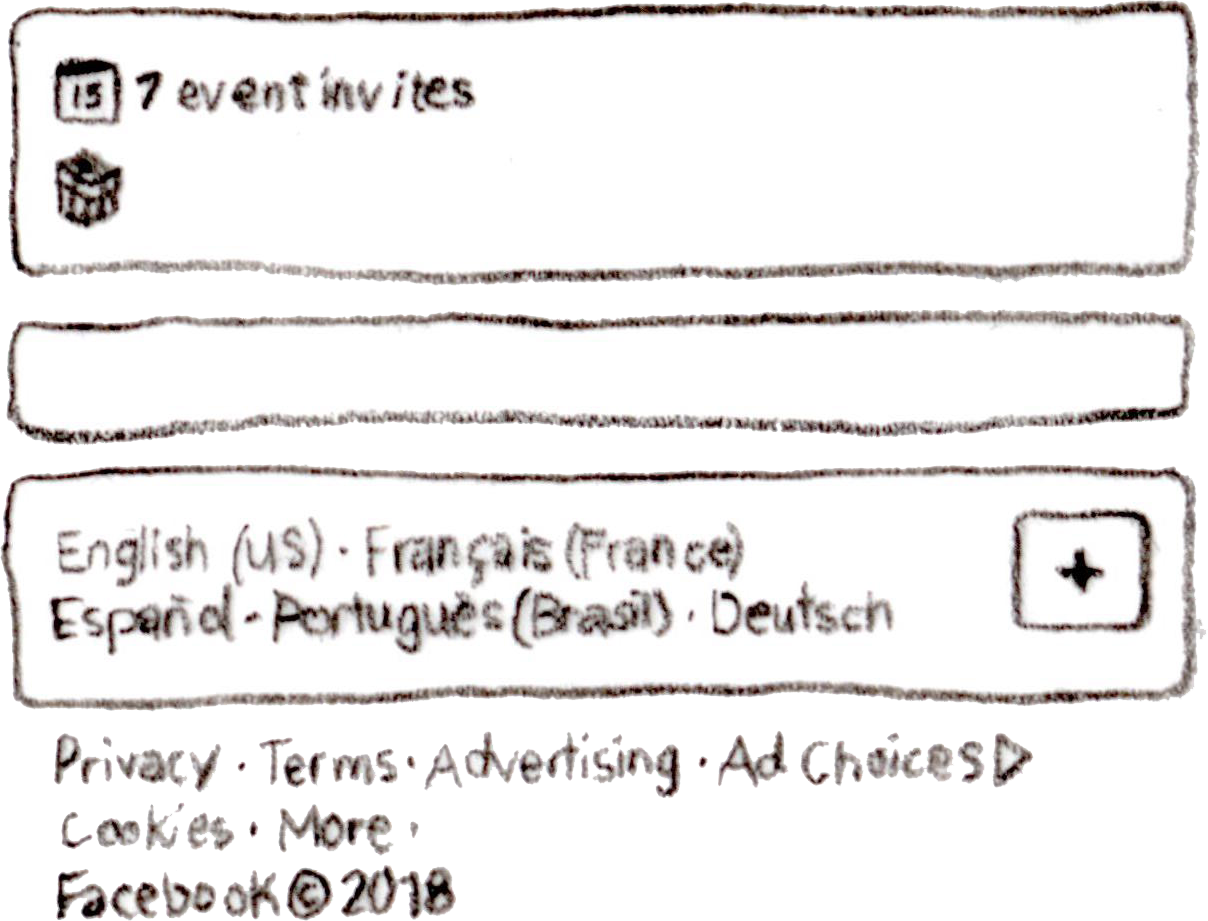 15 7 event invites
English (US) · Français (France)
Español - Português (Brasil) · Deutsch
Privacy · Terms · Advertising · Ad Choices
Cookies · More ·
Facebook © 2018